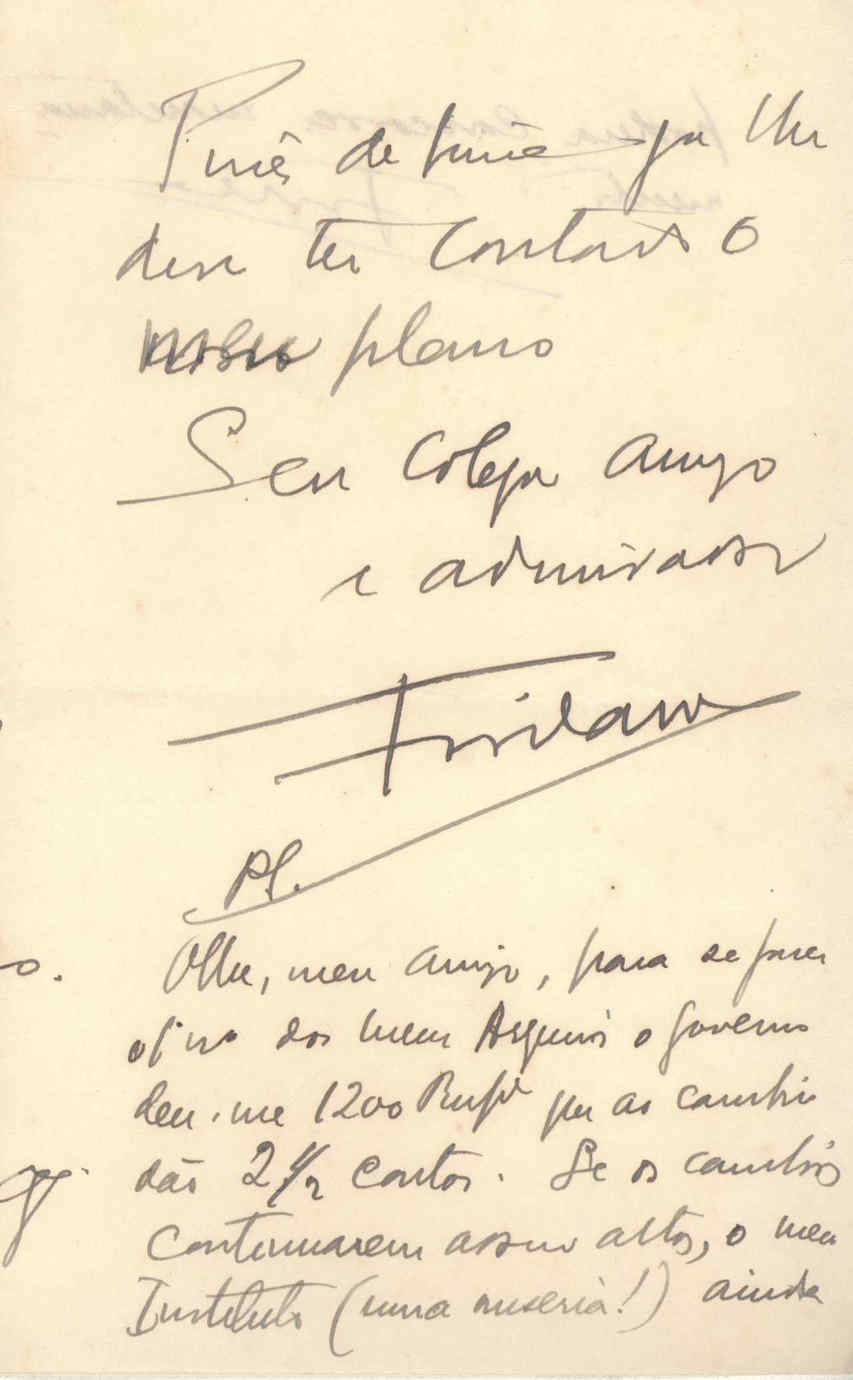 de lhe
deve ter contado o
meu plano
Seu Colega Amigo
e admirador
Froilano
PS.
Olhe, meu amigo, para se fazer
dos meus Arquivos o governo
deu-me 1200 Rupi que ao cambio
dão 2 1/2 contos. Se os cambios
Continuarem assim altos, o meu
Instituto (uma miseria!) ainda
o.